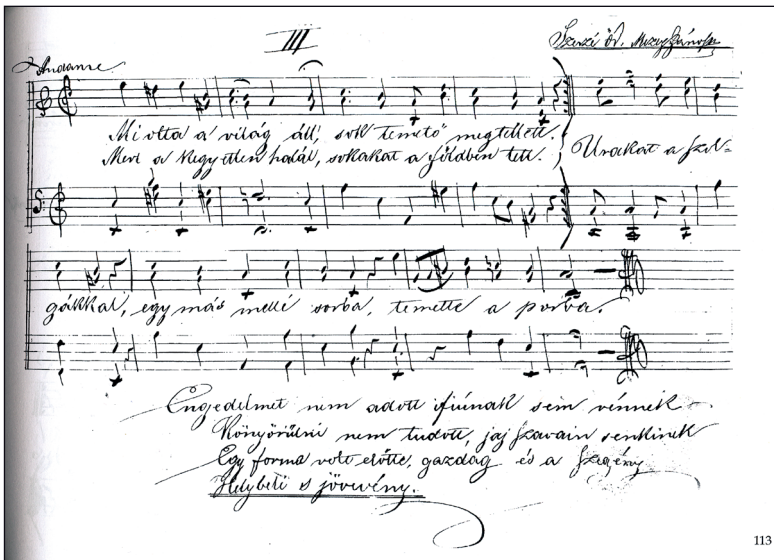 III
Szerzé id.
Andante
Mi olta a világ áll, sok temető megtellett.
Mert a kegyetlen halál, sokakat a földben tett. } Urakat a szol=
gákkal, egymás mellé sorba, temette a porba.
Engedelmet nem adott ifiúnak sem vénnek
Könyörülni nem tudott, jaj szavain senkinek
Egy forma volt előtte, gazdag és a szegény
Helybeli s jövevény.
113